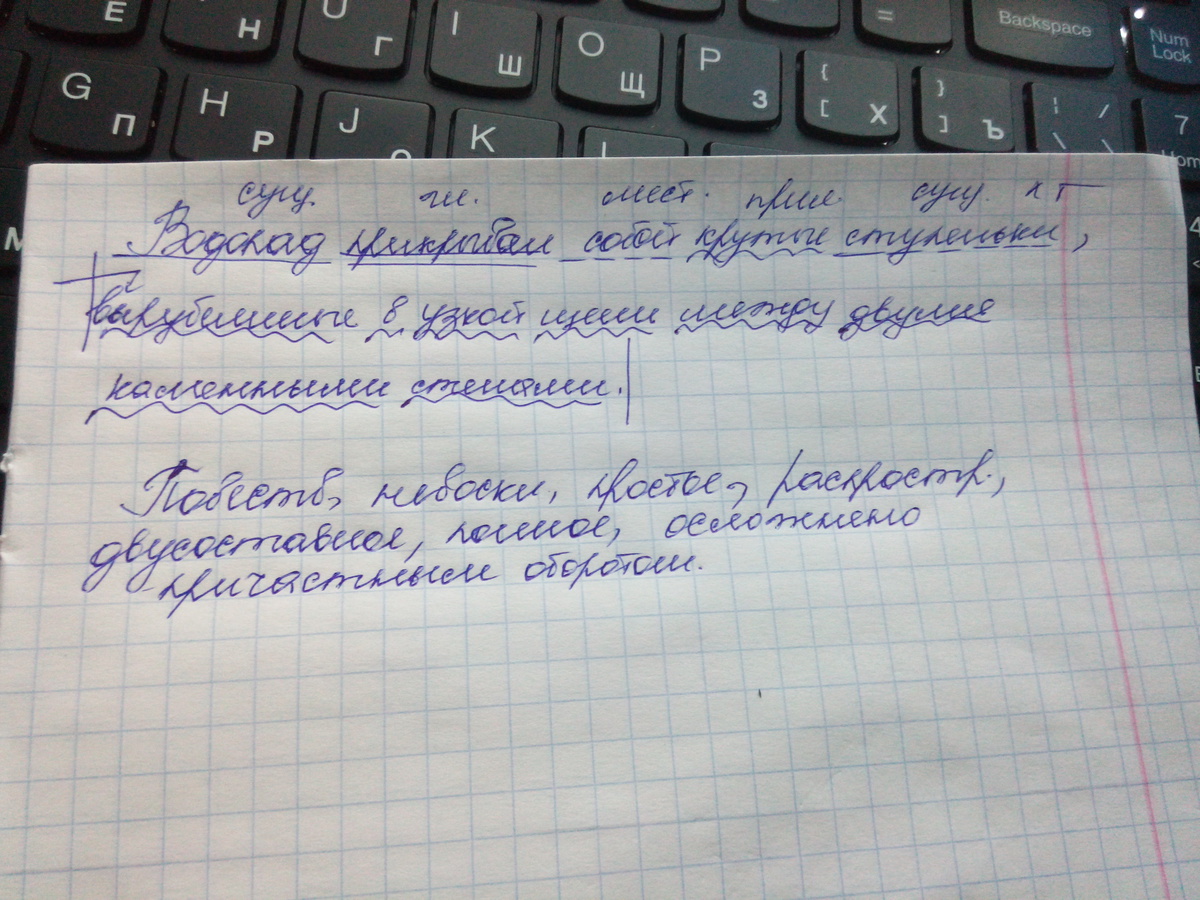 Е
Н
U Г
I Ш
O Щ
P З
=
Backspace
Num Lock
G П
H Р
J О
K
L
{ [ Х
} ] Ъ
7 Home
сущ. гл. мест. прил. сущ.
Водопад прикрывал собой крутые ступеньки,
вырубленные в узкой щели между двумя
каменными стенами.
Повеств, невоскл, простое, распростр.,
двусоставное, полное, осложнено
причастным оборотом.